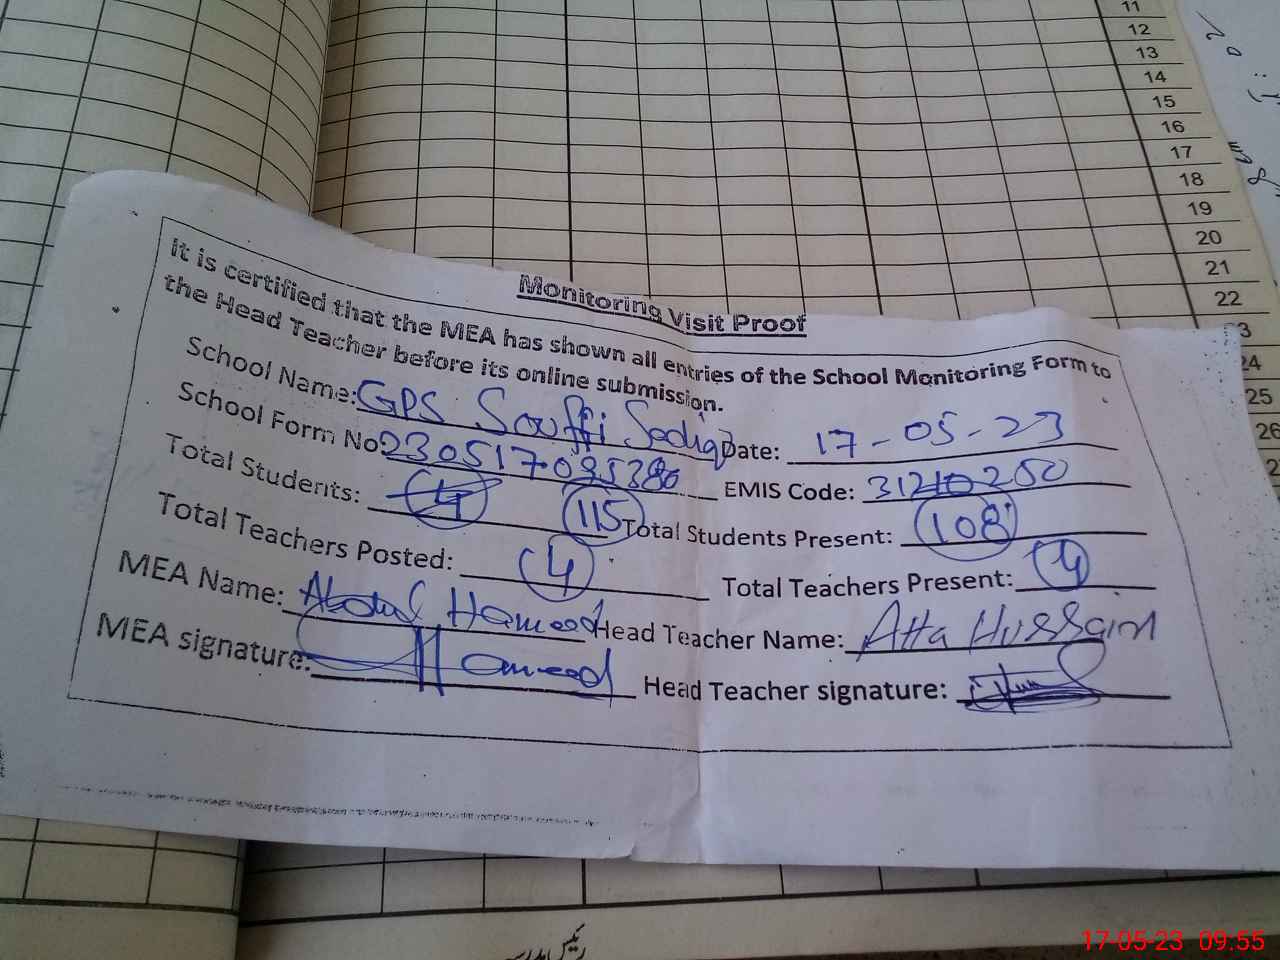 11
12
13
14
15
16
17
18
19
20
21
22
24
25
26
Monitoring Visit Proof
It is certified that the MEA has shown all entries of the School Monitoring Form to
the Head Teacher before its online submission.
School Name: GPS Souffi Sadiq Date: 17-05-23
School Form No. EMIS Code: 31210250
Total Students: 115 Total Students Present: 108
Total Teachers Posted: 4 Total Teachers Present: 4
MEA Name: Abdul Hameed Head Teacher Name: Atta Hussain
MEA signature: Hameed Head Teacher signature:
17-05-23 09:55